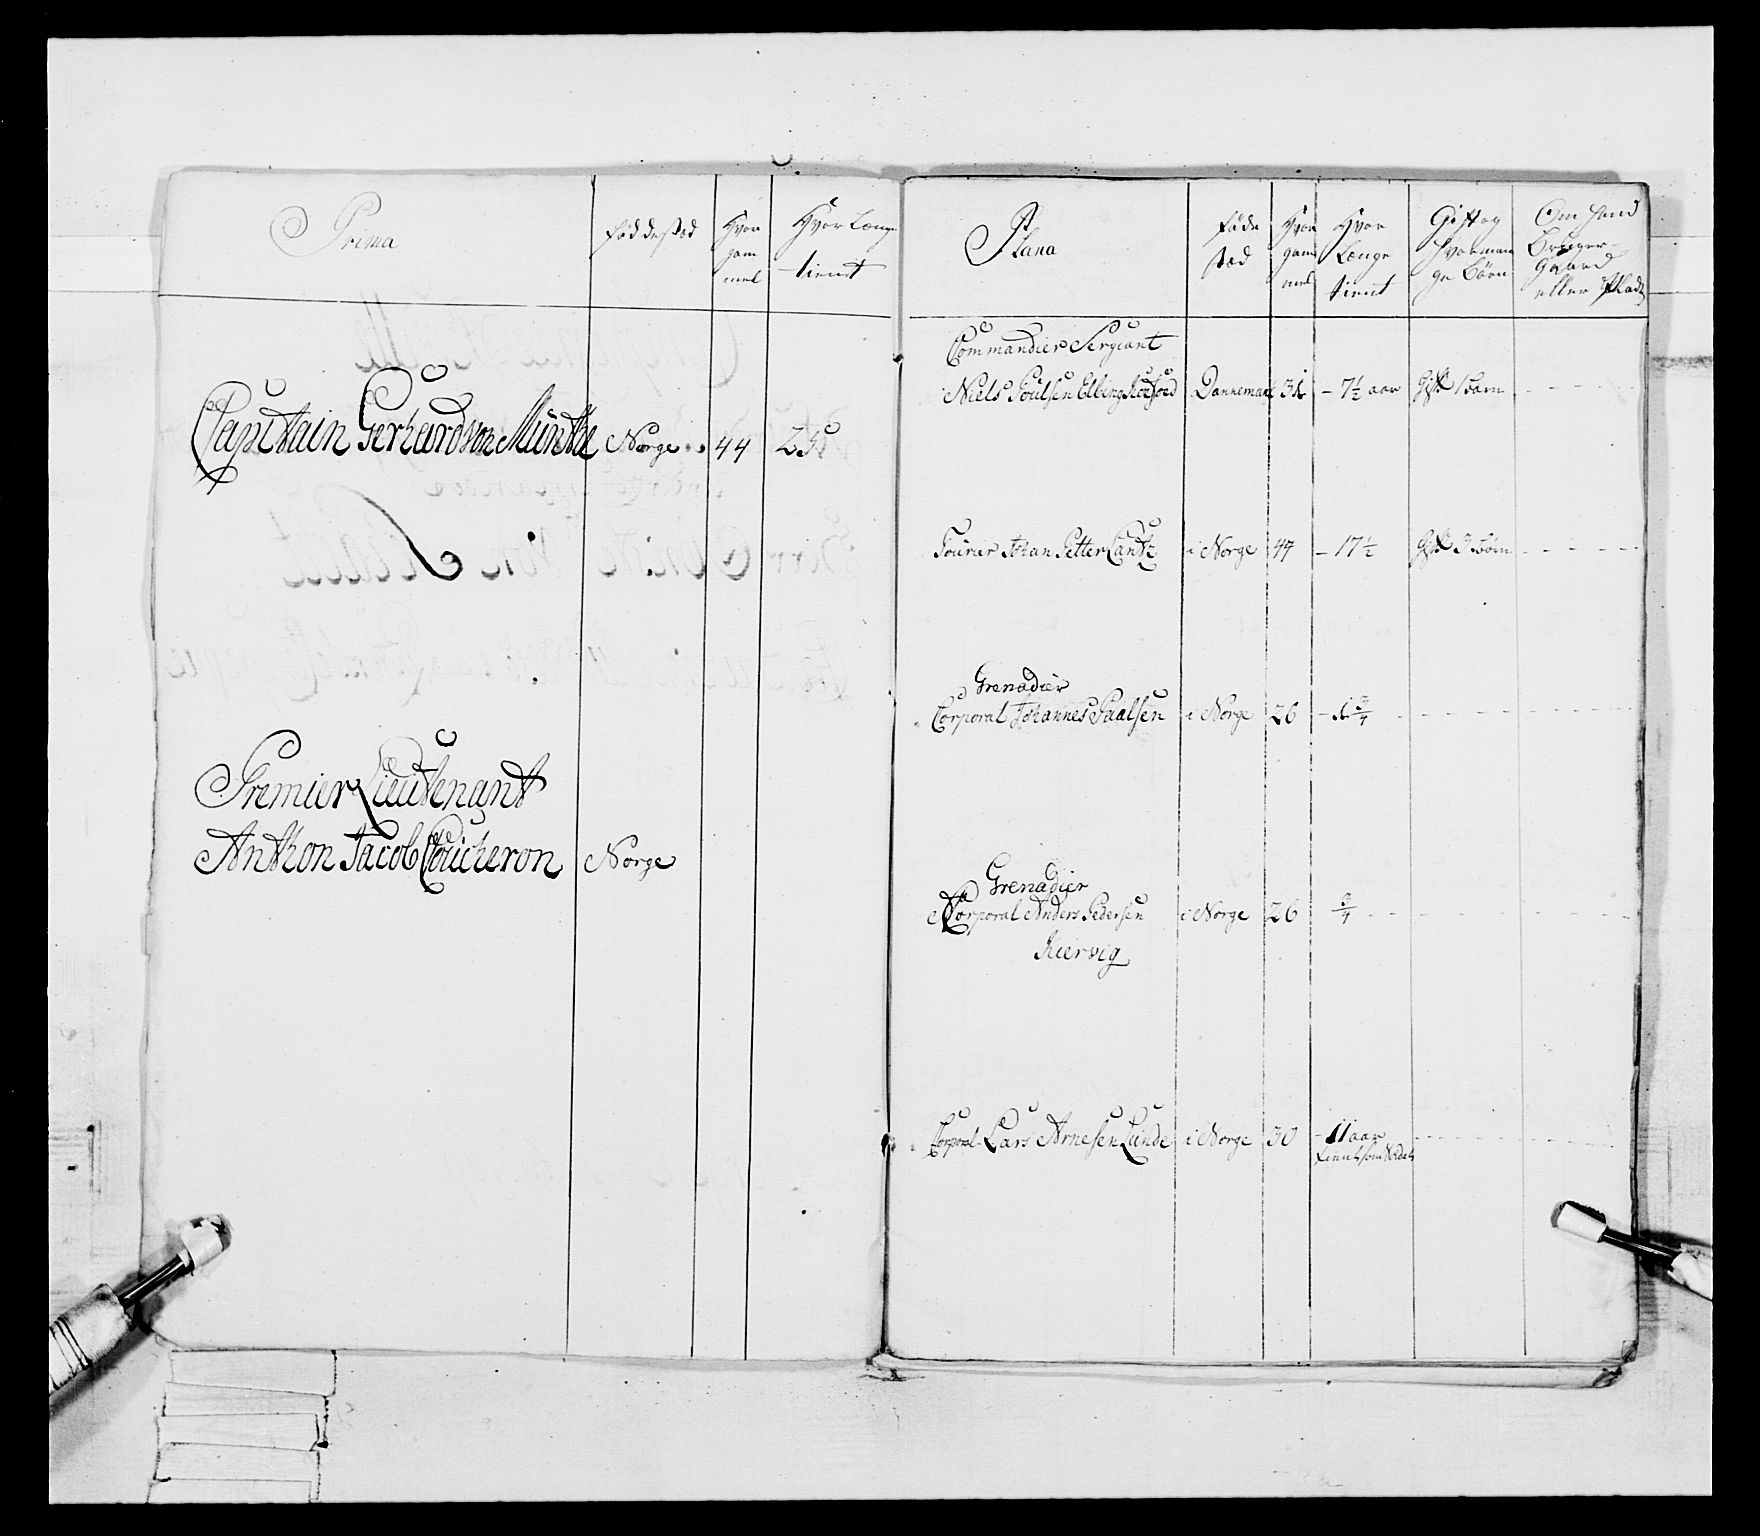 Prima
föddestad
Hvor
gam
mel
Hvor Længe
tient
Capitain Gerhard von Munthe Norge 44 25
Premier Lieutenant
Anthon Jacob Coucheron Norge
Plana
föde
stad
Hvor
gam
mel
Hvor
Længe
tient
Gift og
hvorman
ge Börn
Om hand
Bruger
Gaard
eller Plads
Commandier Sergeant
Niels Poulsen Dannemark - 7½ aar Gift 1 barn
Fourier Johan Petter Lantz i Norge 47 - 17½ Gift 3 Börn
Grenadier
Corporal Johannes Paalsen i Norge 26
Grenadier
Corporal Anders Pedersen i Norge 26 3/4
Kiervig
Corporal Lars Arnesen Lunde i Norge 30 - 11 aar
tient som Soldat